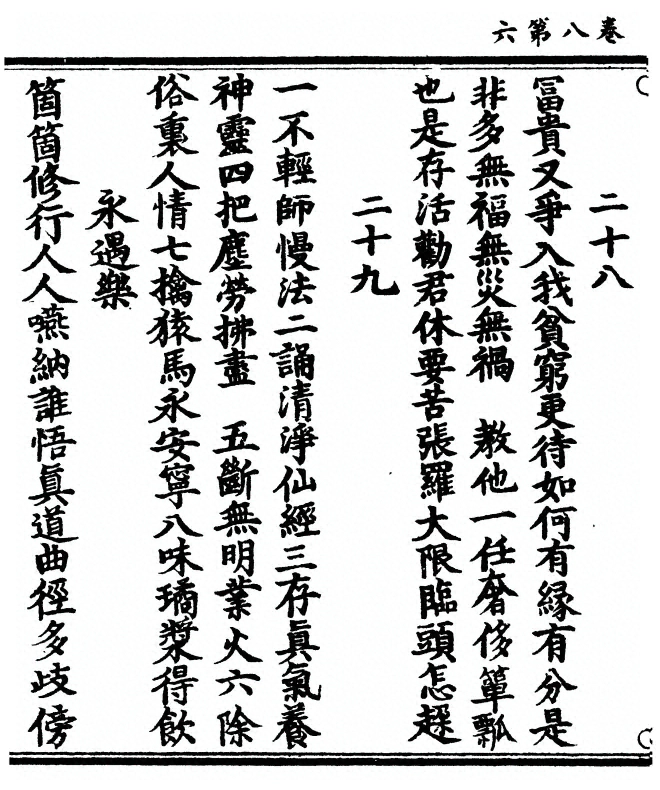 卷八第六
二十八
冨貴又爭入我貧窮更待如何有緣有分是
非多無福無災無禍　教他一任奢侈簞瓢
也是存活勸君休要苦張羅大限臨頭怎趓
二十九
一不輕師慢法二誦清淨仙經三存眞氣養
神靈四把塵勞拂盡　五斷無明業火六除
俗裏人情七擒猿馬永安寧八味瓊漿得飲
永遇樂
箇箇修行人人嚥納誰悟眞道曲徑多歧傍